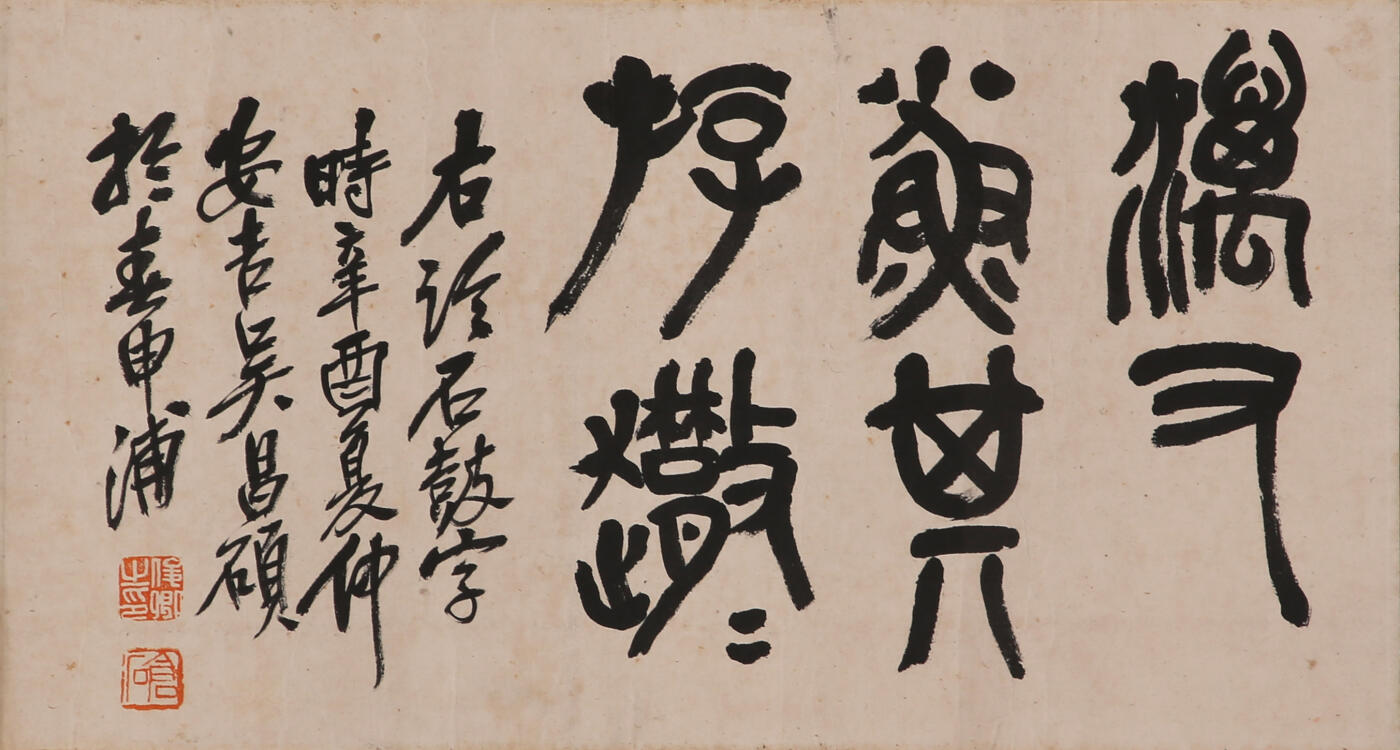 澫又
小魚其
斿
右石鼓字
時辛酉夏仲
安吉吳昌碩
於春申浦
俊卿之印
倉石